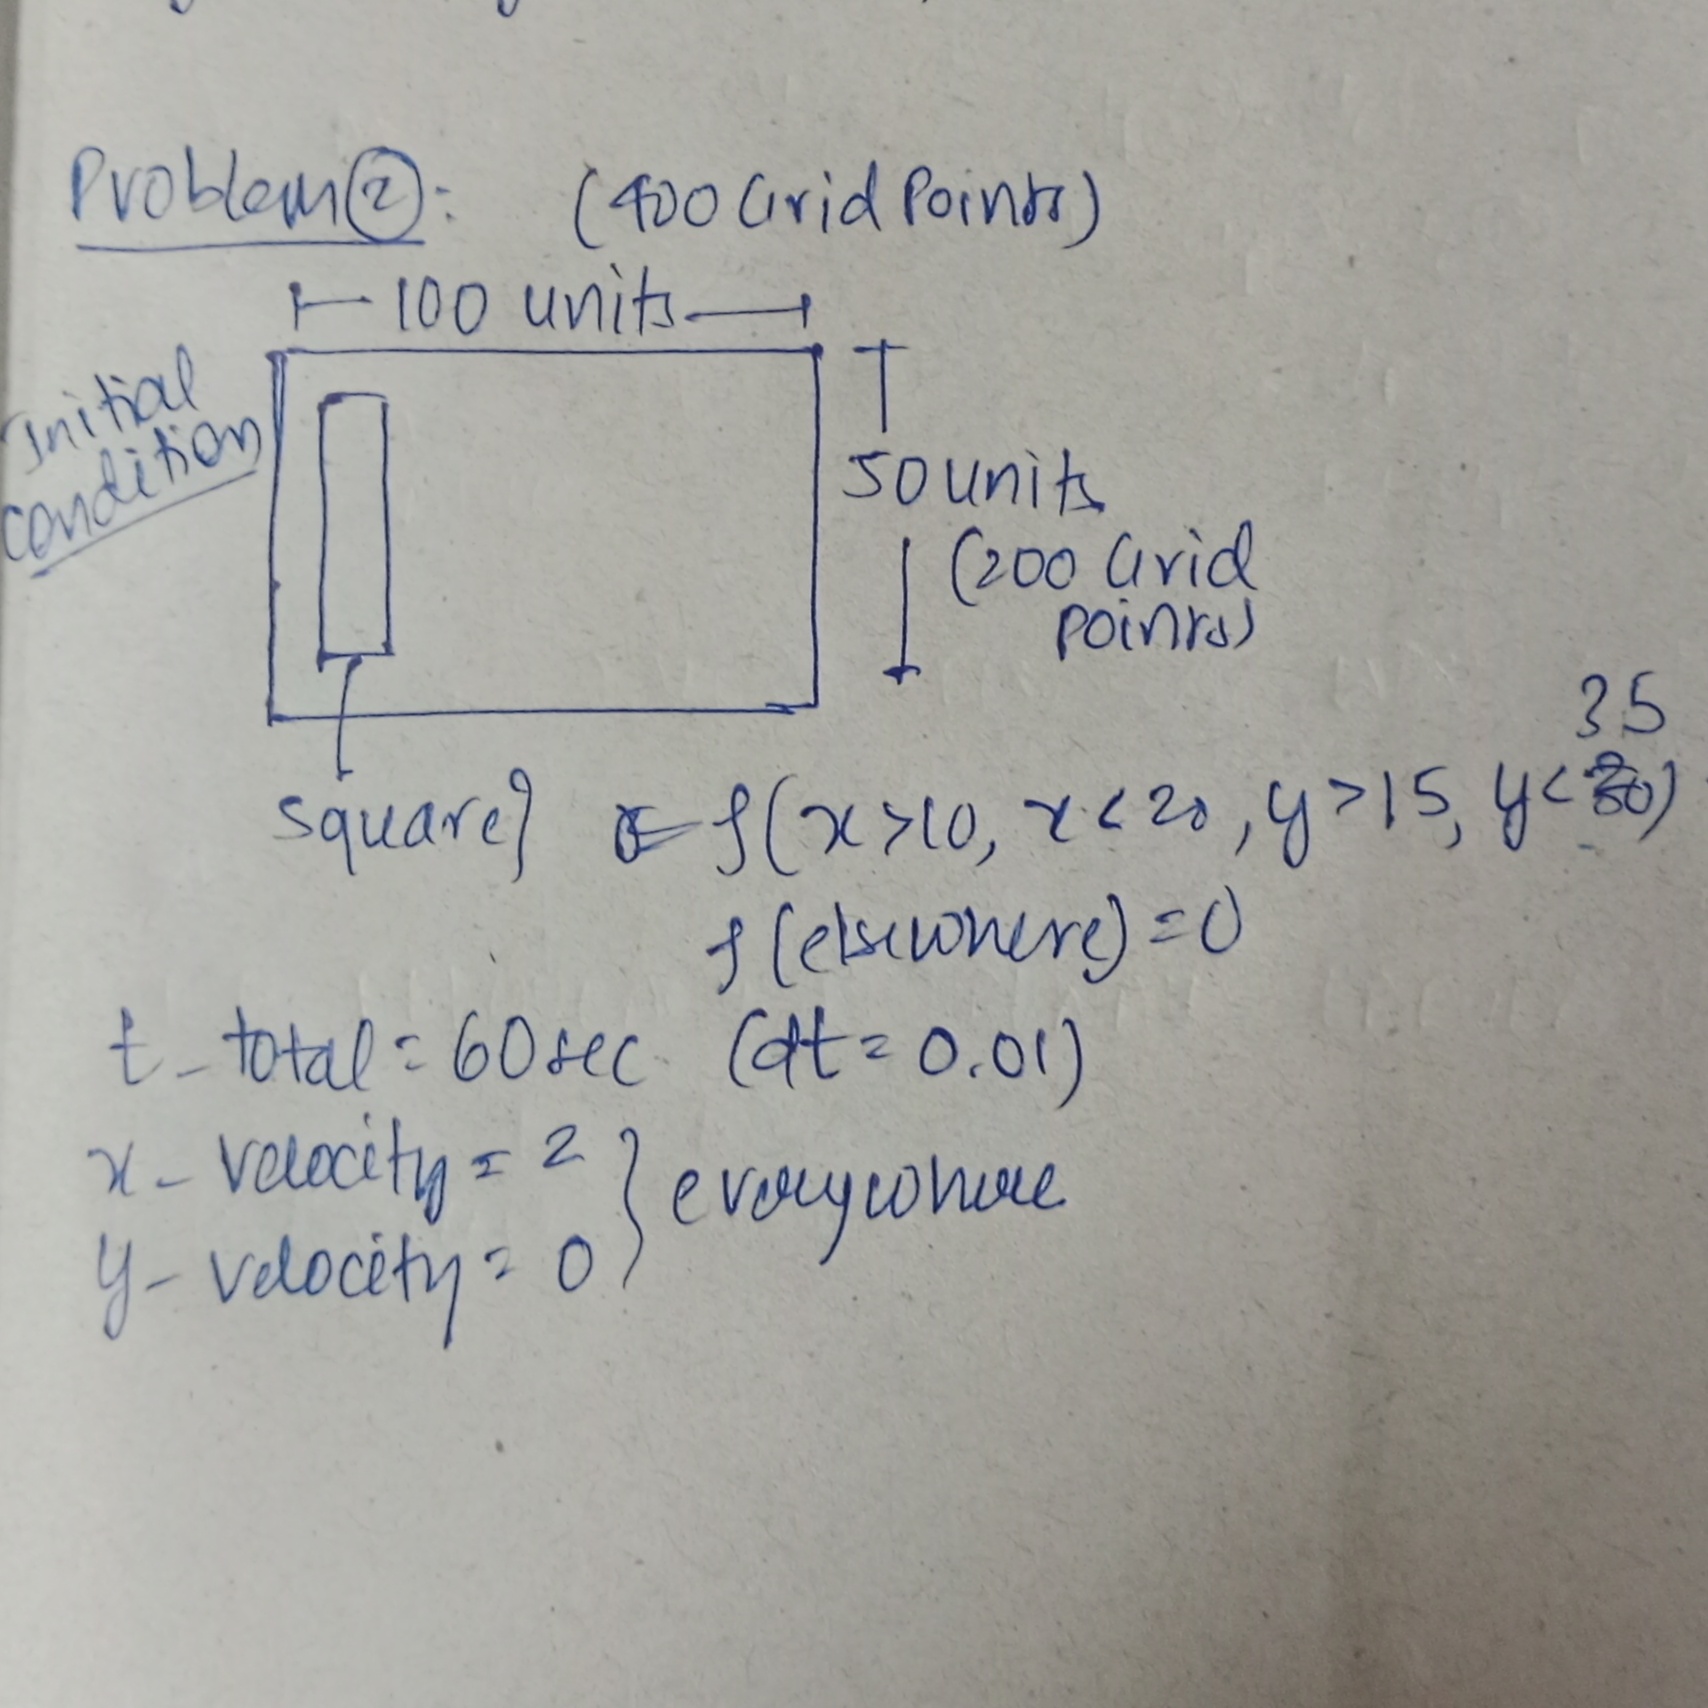 Problem ②: (400 Grid Points)
100 units
Initial condition
50 units
(200 Grid points)
35
square} f(x>10, x<20, y>15, y<)
f(elsewhere) = 0
t-total = 60 sec (dt = 0.01)
x-velocity = 2
y-velocity = 0 } everywhere